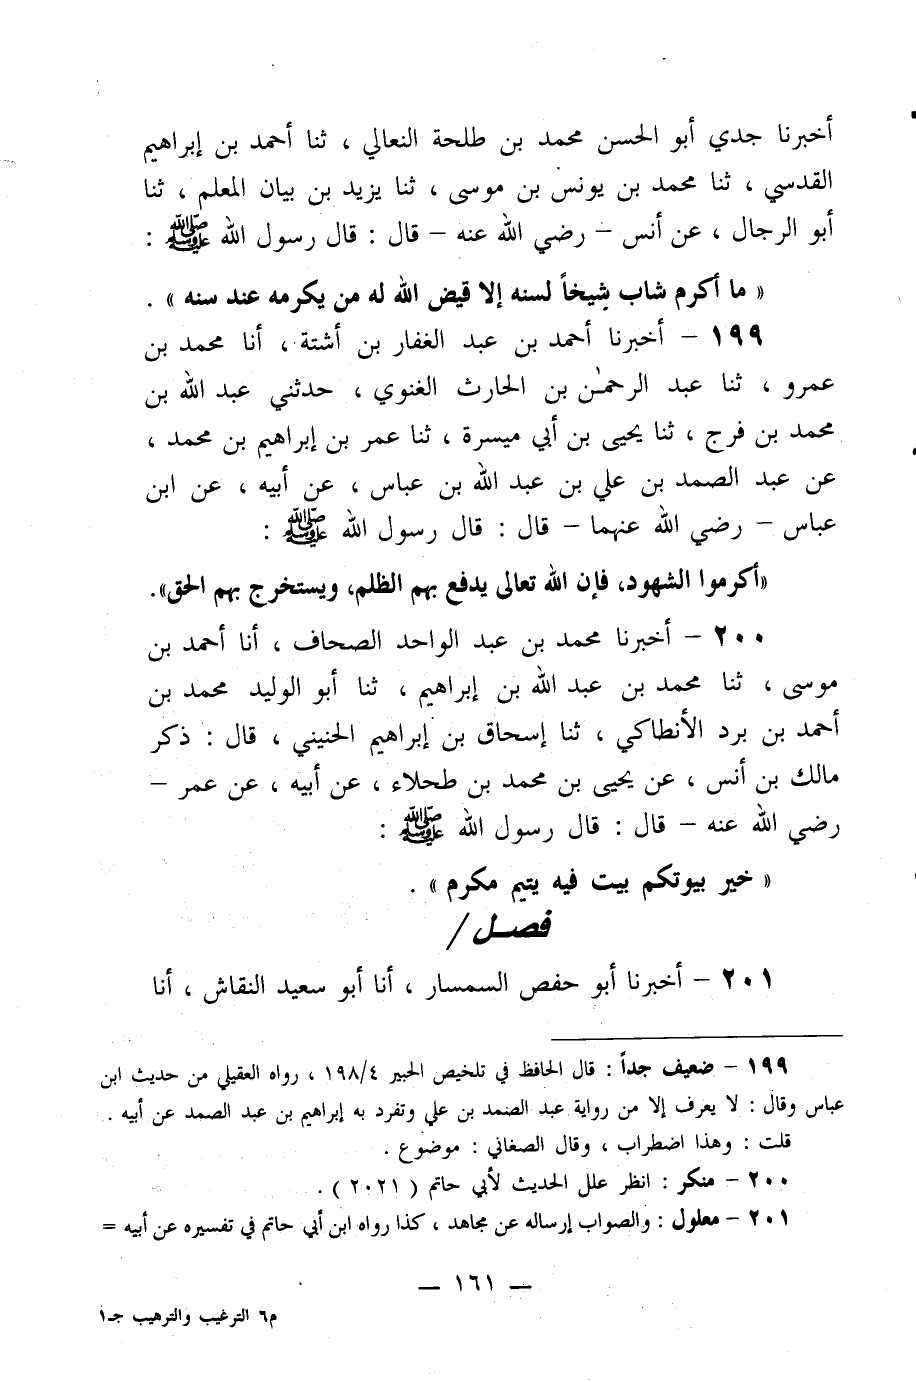 أخبرنا جدي أبو الحسن محمد بن طلحة النعالي ، ثنا أحمد بن إبراهيم
القدسي ، ثنا محمد بن يونس بن موسى ، ثنا يزيد بن بيان المعلم ، ثنا
أبو الرجال ، عن أنس – رضي الله عنه – قال : قال رسول الله ﷺ :
« ما أكرم شاب شيخاً لسنه إلا قيض الله له من يكرمه عند سنه » .
١٩٩ – أخبرنا أحمد بن عبد الغفار بن أشتة ، أنا محمد بن
عمرو ، ثنا عبد الرحمٰن بن الحارث الغنوي ، حدثني عبد الله بن
محمد بن فرج ، ثنا يحيى بن أبي ميسرة ، ثنا عمر بن إبراهيم بن محمد ،
عن عبد الصمد بن علي بن عبد الله بن عباس ، عن أبيه ، عن ابن
عباس – رضي الله عنهما – قال : قال رسول الله ﷺ :
«أكرموا الشهود، فإن الله تعالى يدفع بهم الظلم، ويستخرج بهم الحق».
٢٠٠ – أخبرنا محمد بن عبد الواحد الصحاف ، أنا أحمد بن
موسى ، ثنا محمد بن عبد الله بن إبراهيم ، ثنا أبو الوليد محمد بن
أحمد بن برد الأنطاكي ، ثنا إسحاق بن إبراهيم الحنيني ، قال : ذكر
مالك بن أنس ، عن يحيى بن محمد بن طحلاء ، عن أبيه ، عن عمر –
رضي الله عنه – قال : قال رسول الله ﷺ :
« خير بيوتكم بيت فيه يتيم مكرم » .
فصل /
٢٠١ – أخبرنا أبو حفص السمسار ، أنا أبو سعيد النقاش ، أنا
١٩٩ – ضعيف جداً : قال الحافظ في تلخيص الحبير ١٩٨/٤ ، رواه العقيلي من حديث ابن
عباس وقال : لا يعرف إلا من رواية عبد الصمد بن علي وتفرد به إبراهيم بن عبد الصمد عن أبيه .
قلت : وهذا اضطراب ، وقال الصغاني : موضوع .
٢٠٠ – منكر : انظر علل الحديث لأبي حاتم ( ٢٠٢١ ) .
٢٠١ – معلول : والصواب إرساله عن مجاهد ، كذا رواه ابن أبي حاتم في تفسيره عن أبيه =
– ١٦١ –
م٦ الترغيب والترهيب جـ١